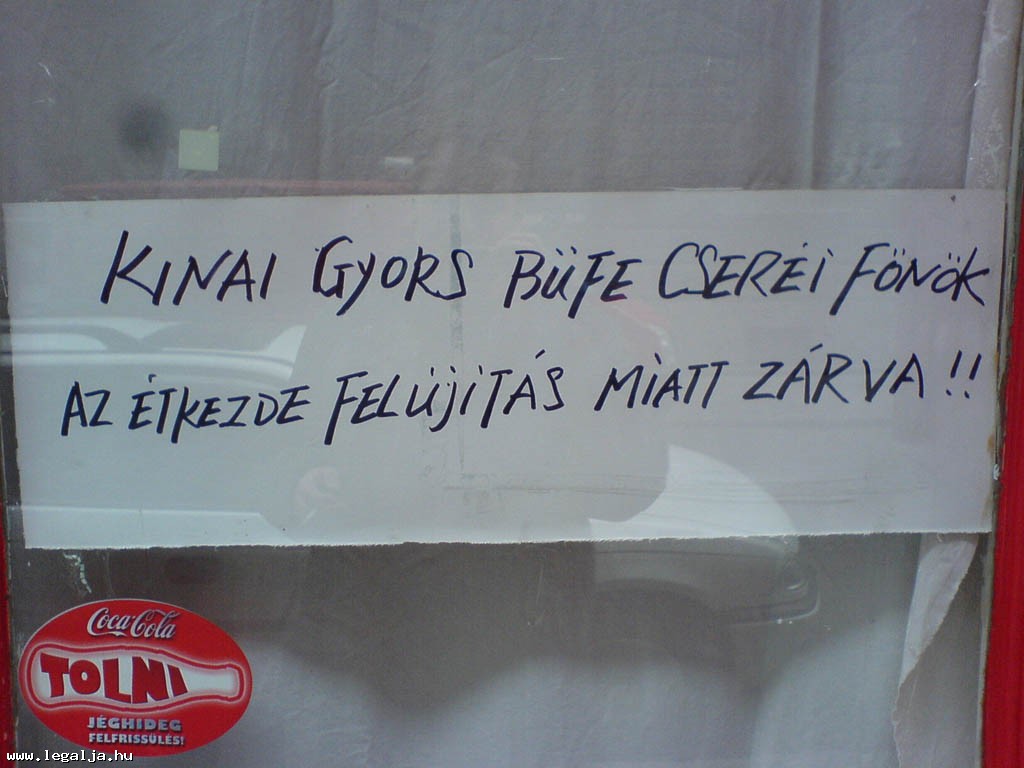 KINAI GYORS BÜFE CSERÉI FŐNÖK
AZ ÉTKEZDE FELÚJITÁS MIATT ZÁRVA!!
Coca-Cola
TOLNI
JÉGHIDEG
FELFRISSÜLÉS!
www.legalja.hu